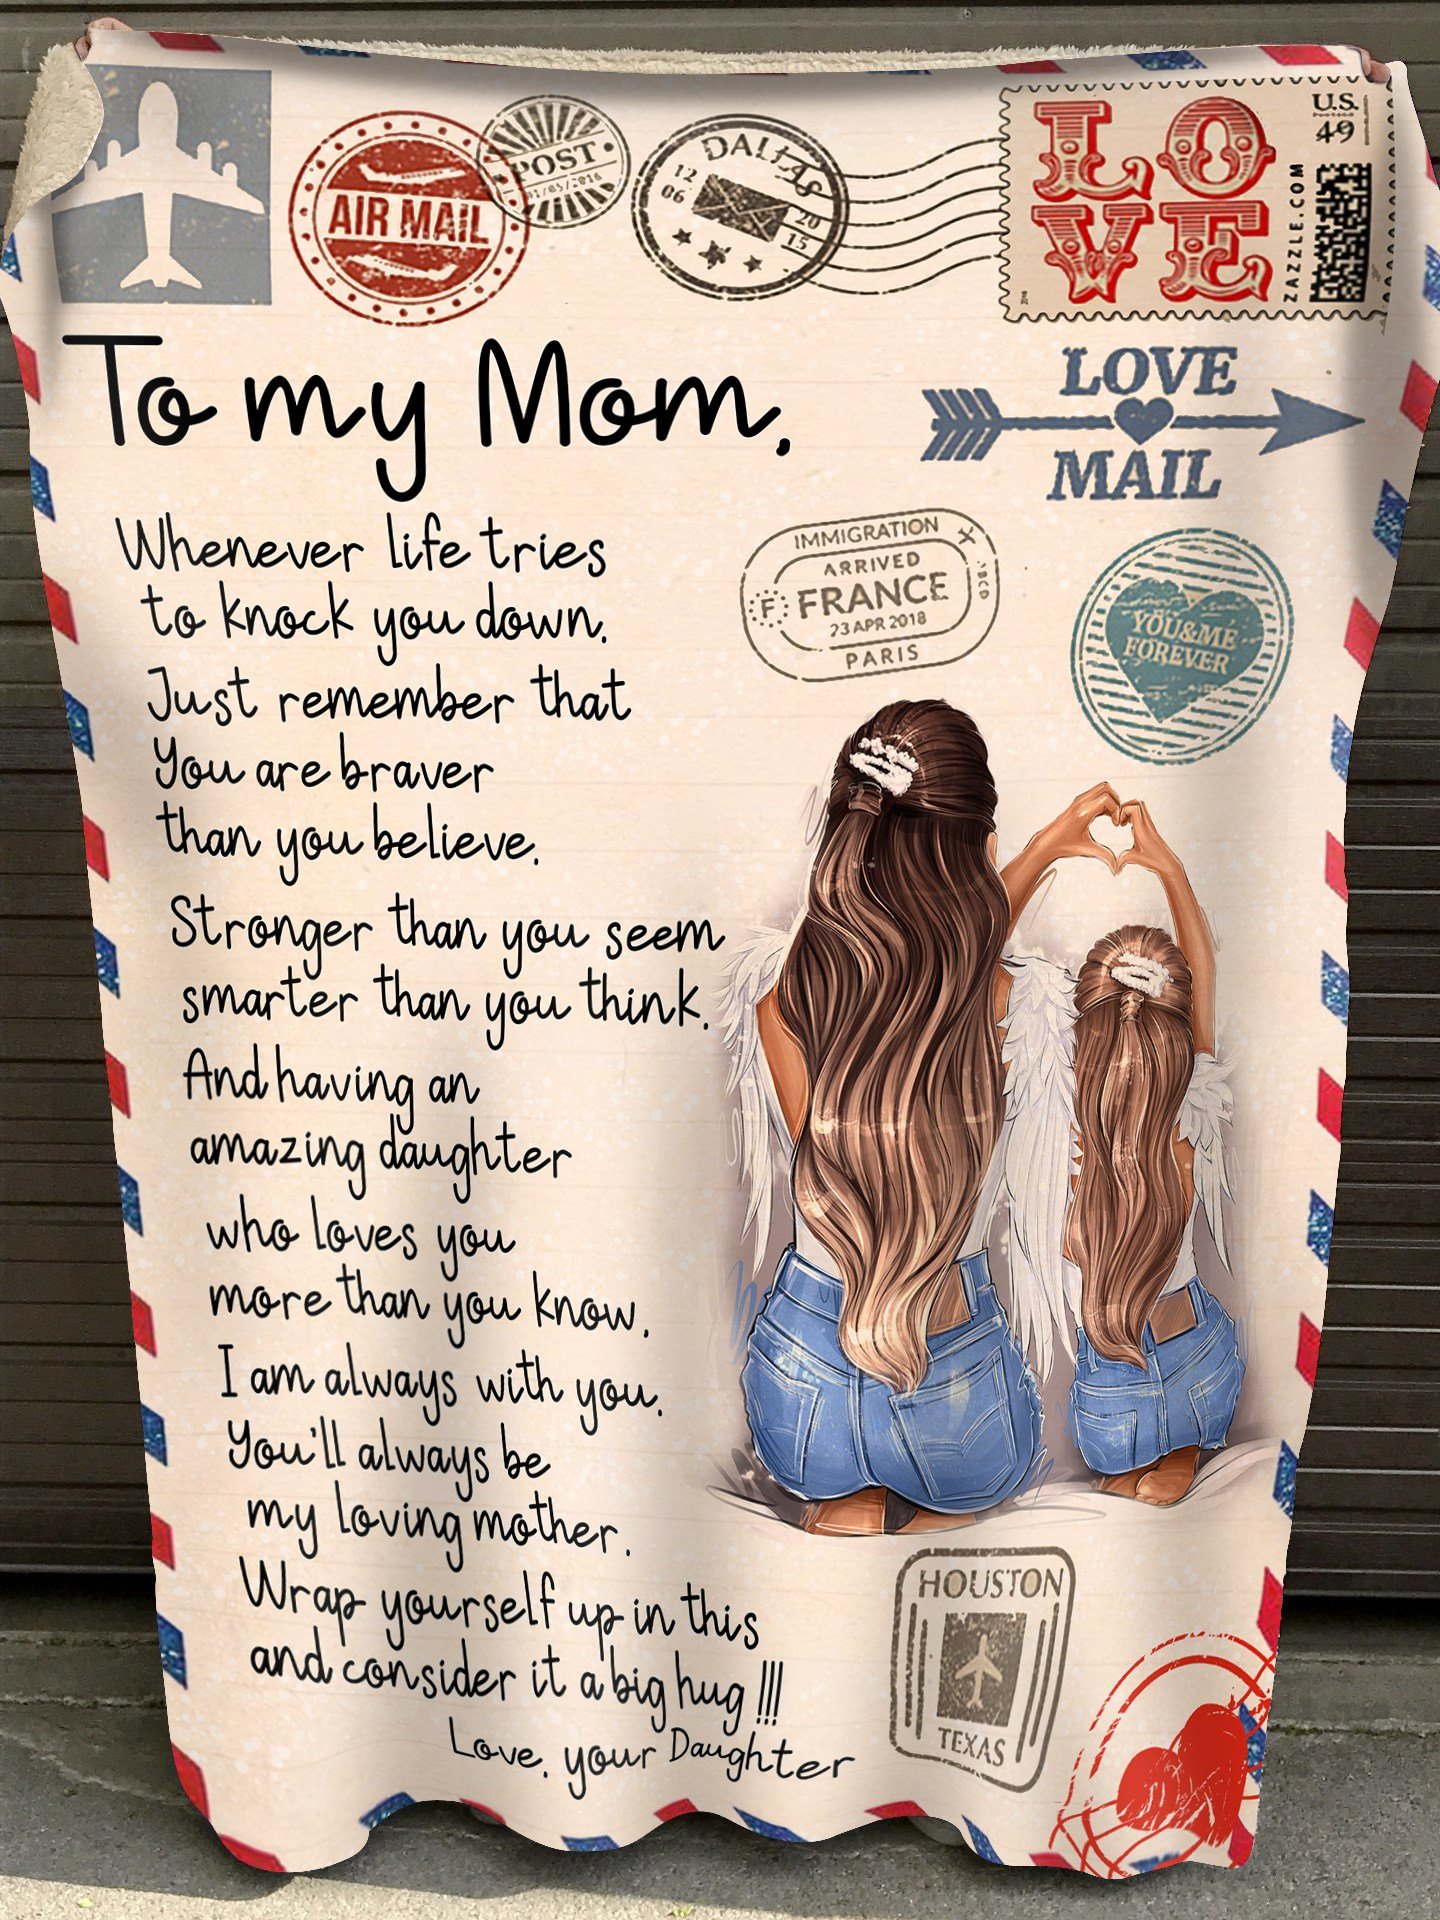 AIR MAIL
POST
DALLAS
12
06
20
15
LOVE
U.S.
49
ZAZZLE.COM
To my Mom,
LOVE
MAIL
Whenever life tries
to knock you down,
Just remember that
You are braver
than you believe,
Stronger than you seem
smarter than you think,
And having an
amazing daughter
who loves you
more than you know,
I am always with you,
You'll always be
my loving mother.
Wrap yourself up in this
and consider it a big hug !!!
Love, your Daughter
IMMIGRATION
ARRIVED
F FRANCE
23 APR 2018
PARIS
YOU&ME
FOREVER
HOUSTON
TEXAS